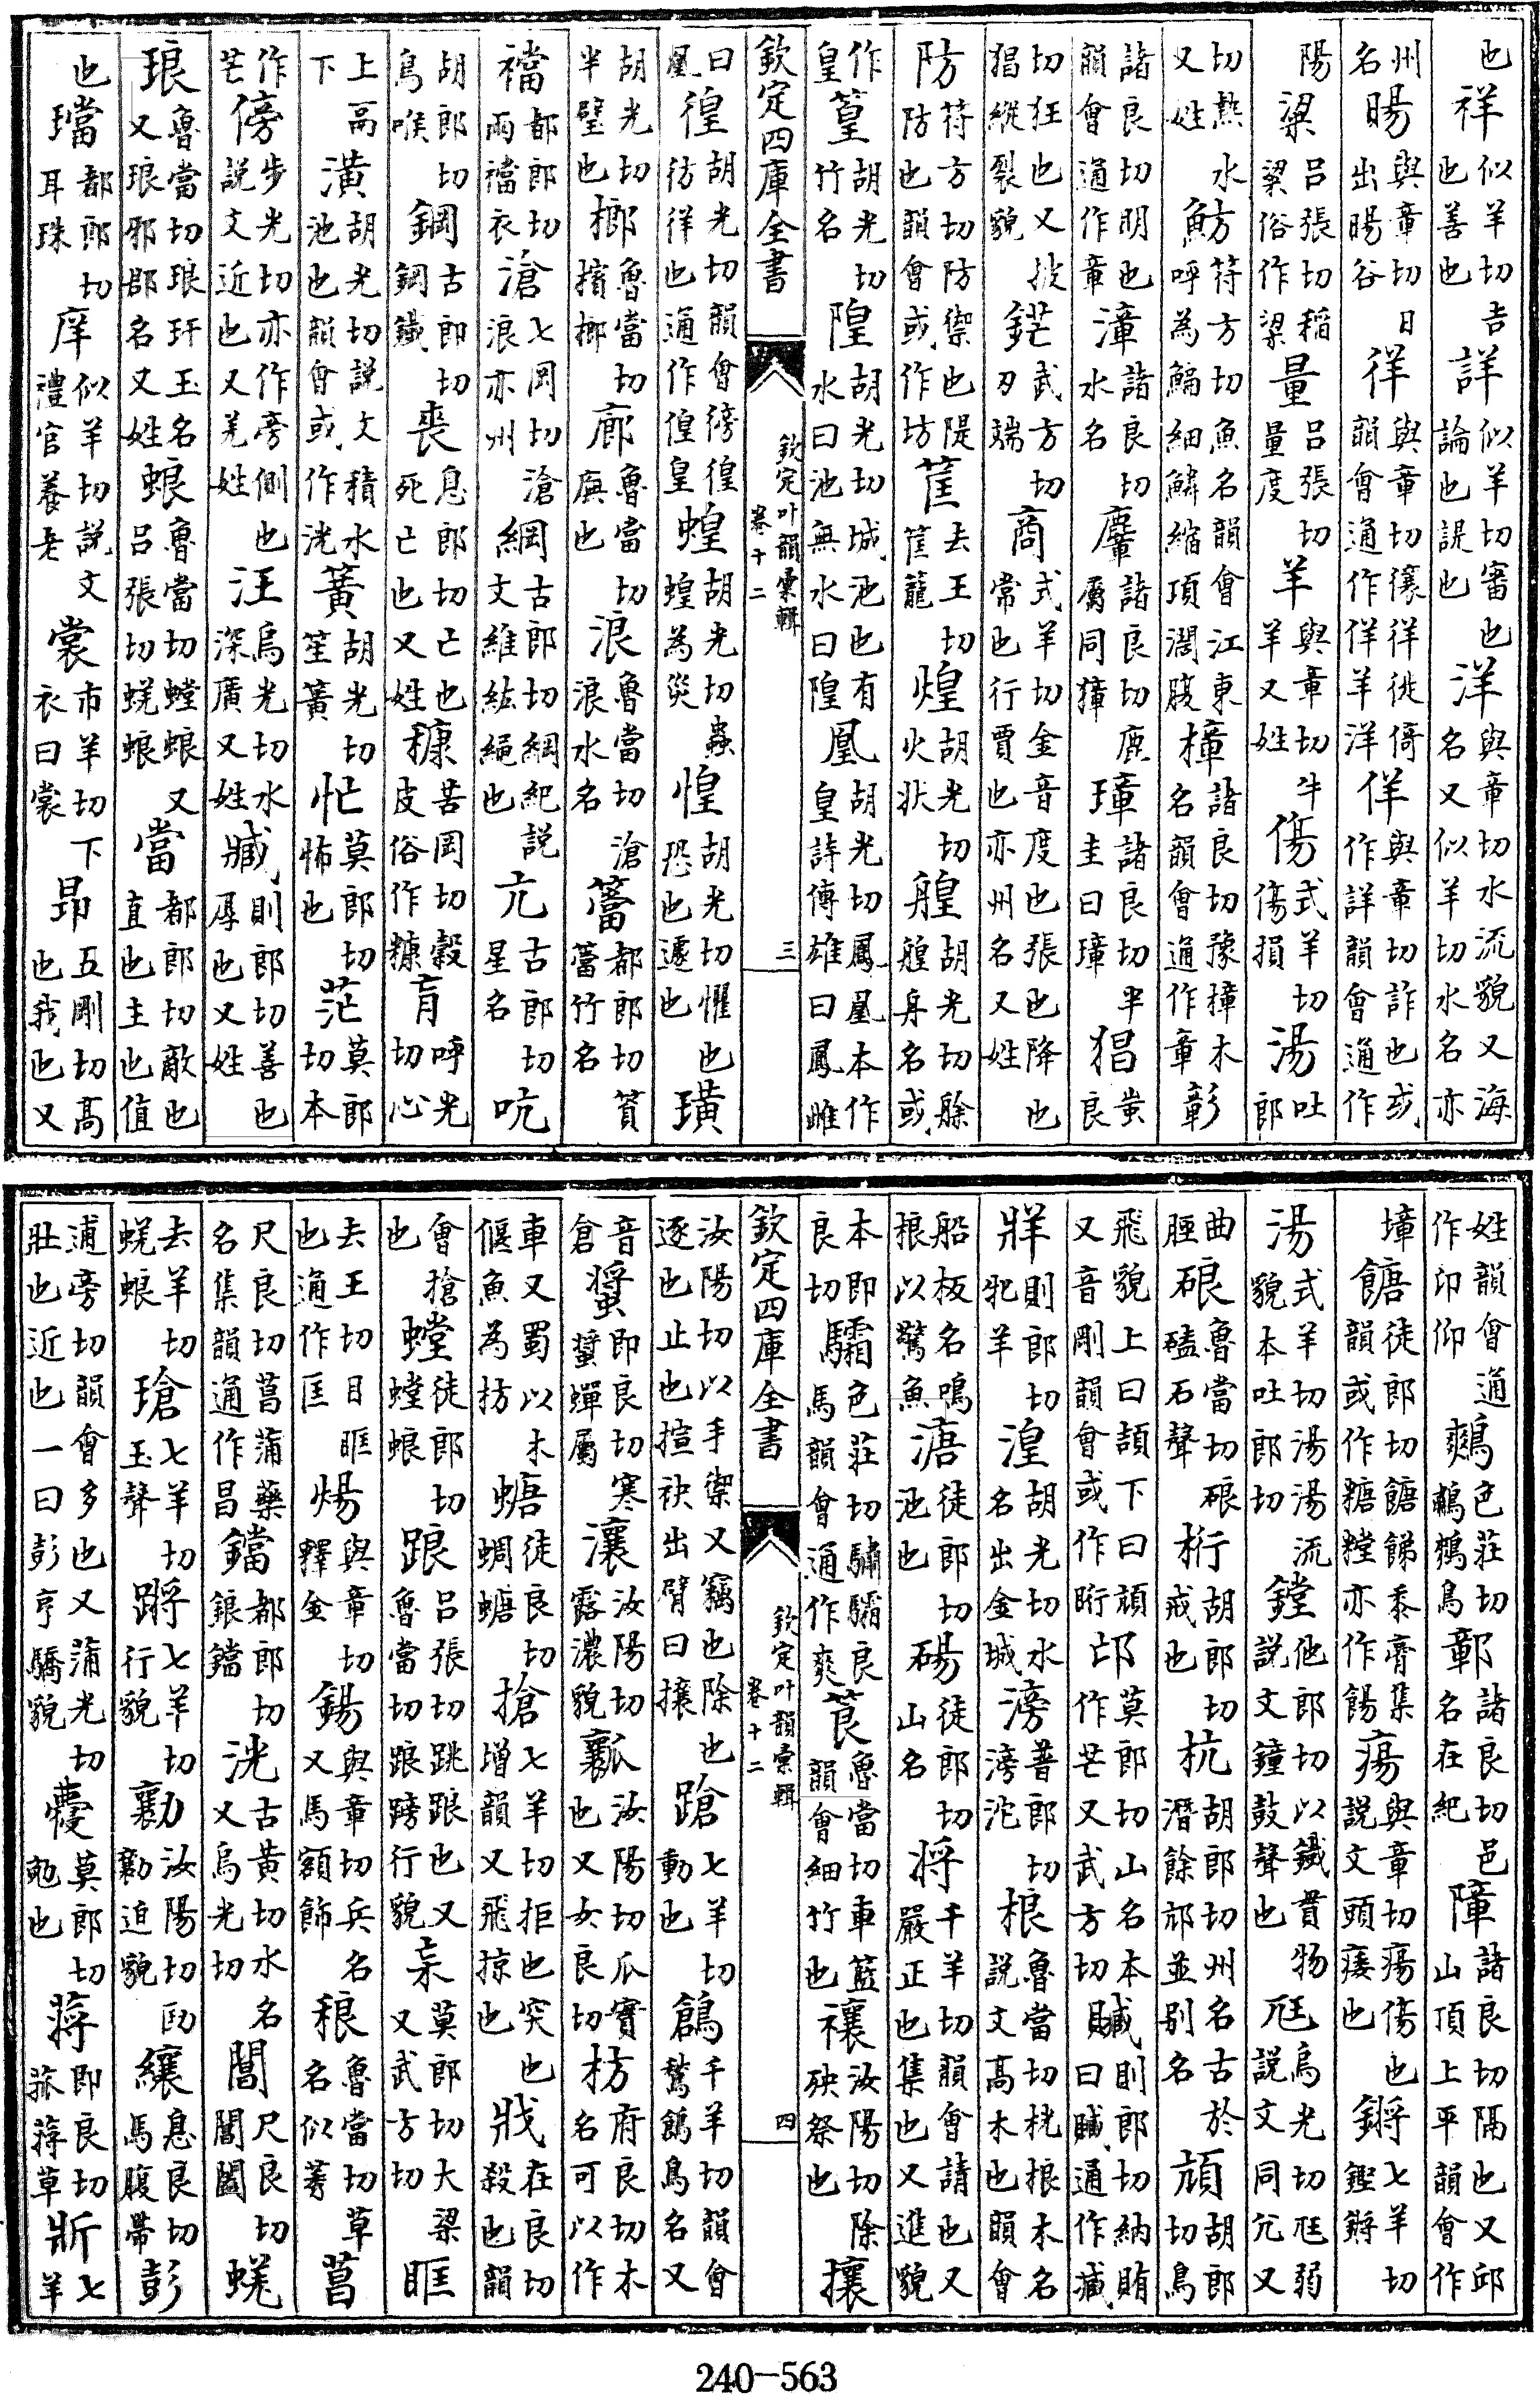 也祥似羊切吉也善也詳似羊切審也論也諟也洋與章切水流貌又海名又似羊切水名亦
州名暘與章切日出暘谷徉與章切儴徉徙倚韻會通作佯羊洋佯與章切詐也或作詳韻會通作
陽粱吕張切稻粱俗作梁量吕張切量度羊與章切牛羊又姓傷式羊切傷損湯吐郎
切熱水又姓魴符方切魚名韻會江東呼為鯿細鱗縮項濶腹樟諸良切豫樟木名韻會通作章彰
諸良切明也韻會通作章漳諸良切水名麞諸良切鹿屬同獐璋諸良切半圭曰璋猖蚩良
切狂也又披猖縱裂貌鋩武方切刃端商式羊切金音度也張也降也常也行賈也亦州名又姓
防符方切防禦也隄防也韻會或作坊筐去王切筐籠煌胡光切火狀艎胡光切艅艎舟名或
作皇篁胡光切竹名隍胡光切城池也有水曰池無水曰隍凰胡光切鳳凰本作皇詩傳雄曰鳳雌
欽定四庫全書 欽定叶韻彚輯 卷十二 三
曰凰徨胡光切韻會徬徨彷徉也通作偟皇蝗胡光切蟲蝗為災惶胡光切懼也恐也遽也璜
胡光切半璧也榔魯當切檳榔廊魯當切廡也浪魯當切滄浪水名簹都郎切篔簹竹名
襠都郎切兩襠衣滄七岡切滄浪亦州綱古郎切綱紀說文維紘繩也亢古郎切星名吭
胡郎切鳥喉鋼古郎切鋼鐵喪息郎切亡也死亡也又姓穅苦岡切穀皮俗作糠肓呼光切心
上鬲下潢胡光切說文積水池也韻會或作洸簧胡光切笙簧忙莫郎切怖也茫莫郎切本
作芒傍步光切亦作旁側也說文近也又羌姓汪烏光切水深廣又姓臧則郎切善也厚也又姓
琅魯當切琅玕玉名又琅邪郡名又姓蜋魯當切螗蜋又吕張切蜣蜋當都郎切敵也直也主也值
也璫都郎切耳珠庠似羊切說文禮官養老裳市羊切下衣曰裳昻五剛切高也我也又
姓韻會通作卬仰鷞色莊切鷫鷞鳥鄣諸良切邑名在紀障諸良切隔也又邱山頂上平韻會作
墇餹徒郎切餹餳黍膏集韻或作糖糛亦作餳瘍與章切瘍傷也說文頭瘡也鏘七羊切鏗鏘
湯式羊切湯湯流貌本吐郎切鏜他郎切以鐵貫物說文鐘鼓聲也尫烏光切尫弱說文同允又
曲脛硠魯當切硠磕石聲桁胡郎切械也杭胡郎切州名古於潛餘邟並别名頏胡郎切鳥
飛貌上曰頡下曰頏又音剛韻會或作䀪邙莫郎切山名本作芒又武方切贓則郎切納賄曰贓通作臧
牂則郎切牝羊湟胡光切水名出金城滂普郎切滂沱桹魯當切桄桹木名說文高木也韻會
船板名鳴桹以驚魚溏徒郎切池也碭徒郎切山名將千羊切韻會請也又嚴正也集也又進貌
本即良切驦色莊切驌驦良馬韻會通作爽莨魯當切車籃韻會細竹也禳汝陽切除殃祭也攘
欽定四庫全書 欽定叶韻彚輯 卷十二 四
汝陽切以手禦又竊也除也逐也止也揎袂出臂曰攘蹌七羊切動也鶬千羊切韻會鶖鶬鳥名又
音倉螿即良切寒螿蟬屬瀼汝陽切露濃貌瓤汝陽切瓜實也又女良切枋府良切木名可以作
車又蜀以木偃魚為枋螗徒良切蜩螗搶七羊切拒也突也增韻又飛掠也戕在良切殺也韻
會搶螳徒郎切螳蜋踉吕張切跳踉也又魯當切踉蹡行貌䒳莫郎切大梁又武方切眶
去王切目眶也通作匡煬與章切釋金鍚與章切兵名又馬額飾稂魯當切草名似莠菖
尺良切菖蒲藥名集韻通作昌鐺都郎切鋃鐺洸古黄切水名又烏光切閶尺良切閶闔蜣
去羊切蜣蜋瑲七羊切玉聲蹡七羊切行貌勷汝陽切劻勷迫貌纕息良切馬腹帶彭
逋旁切韻會多也又蒲光切壯也近也一曰彭亨驕貌㝱莫郎切勉也蔣即良切菰蔣草斨七羊
240-563